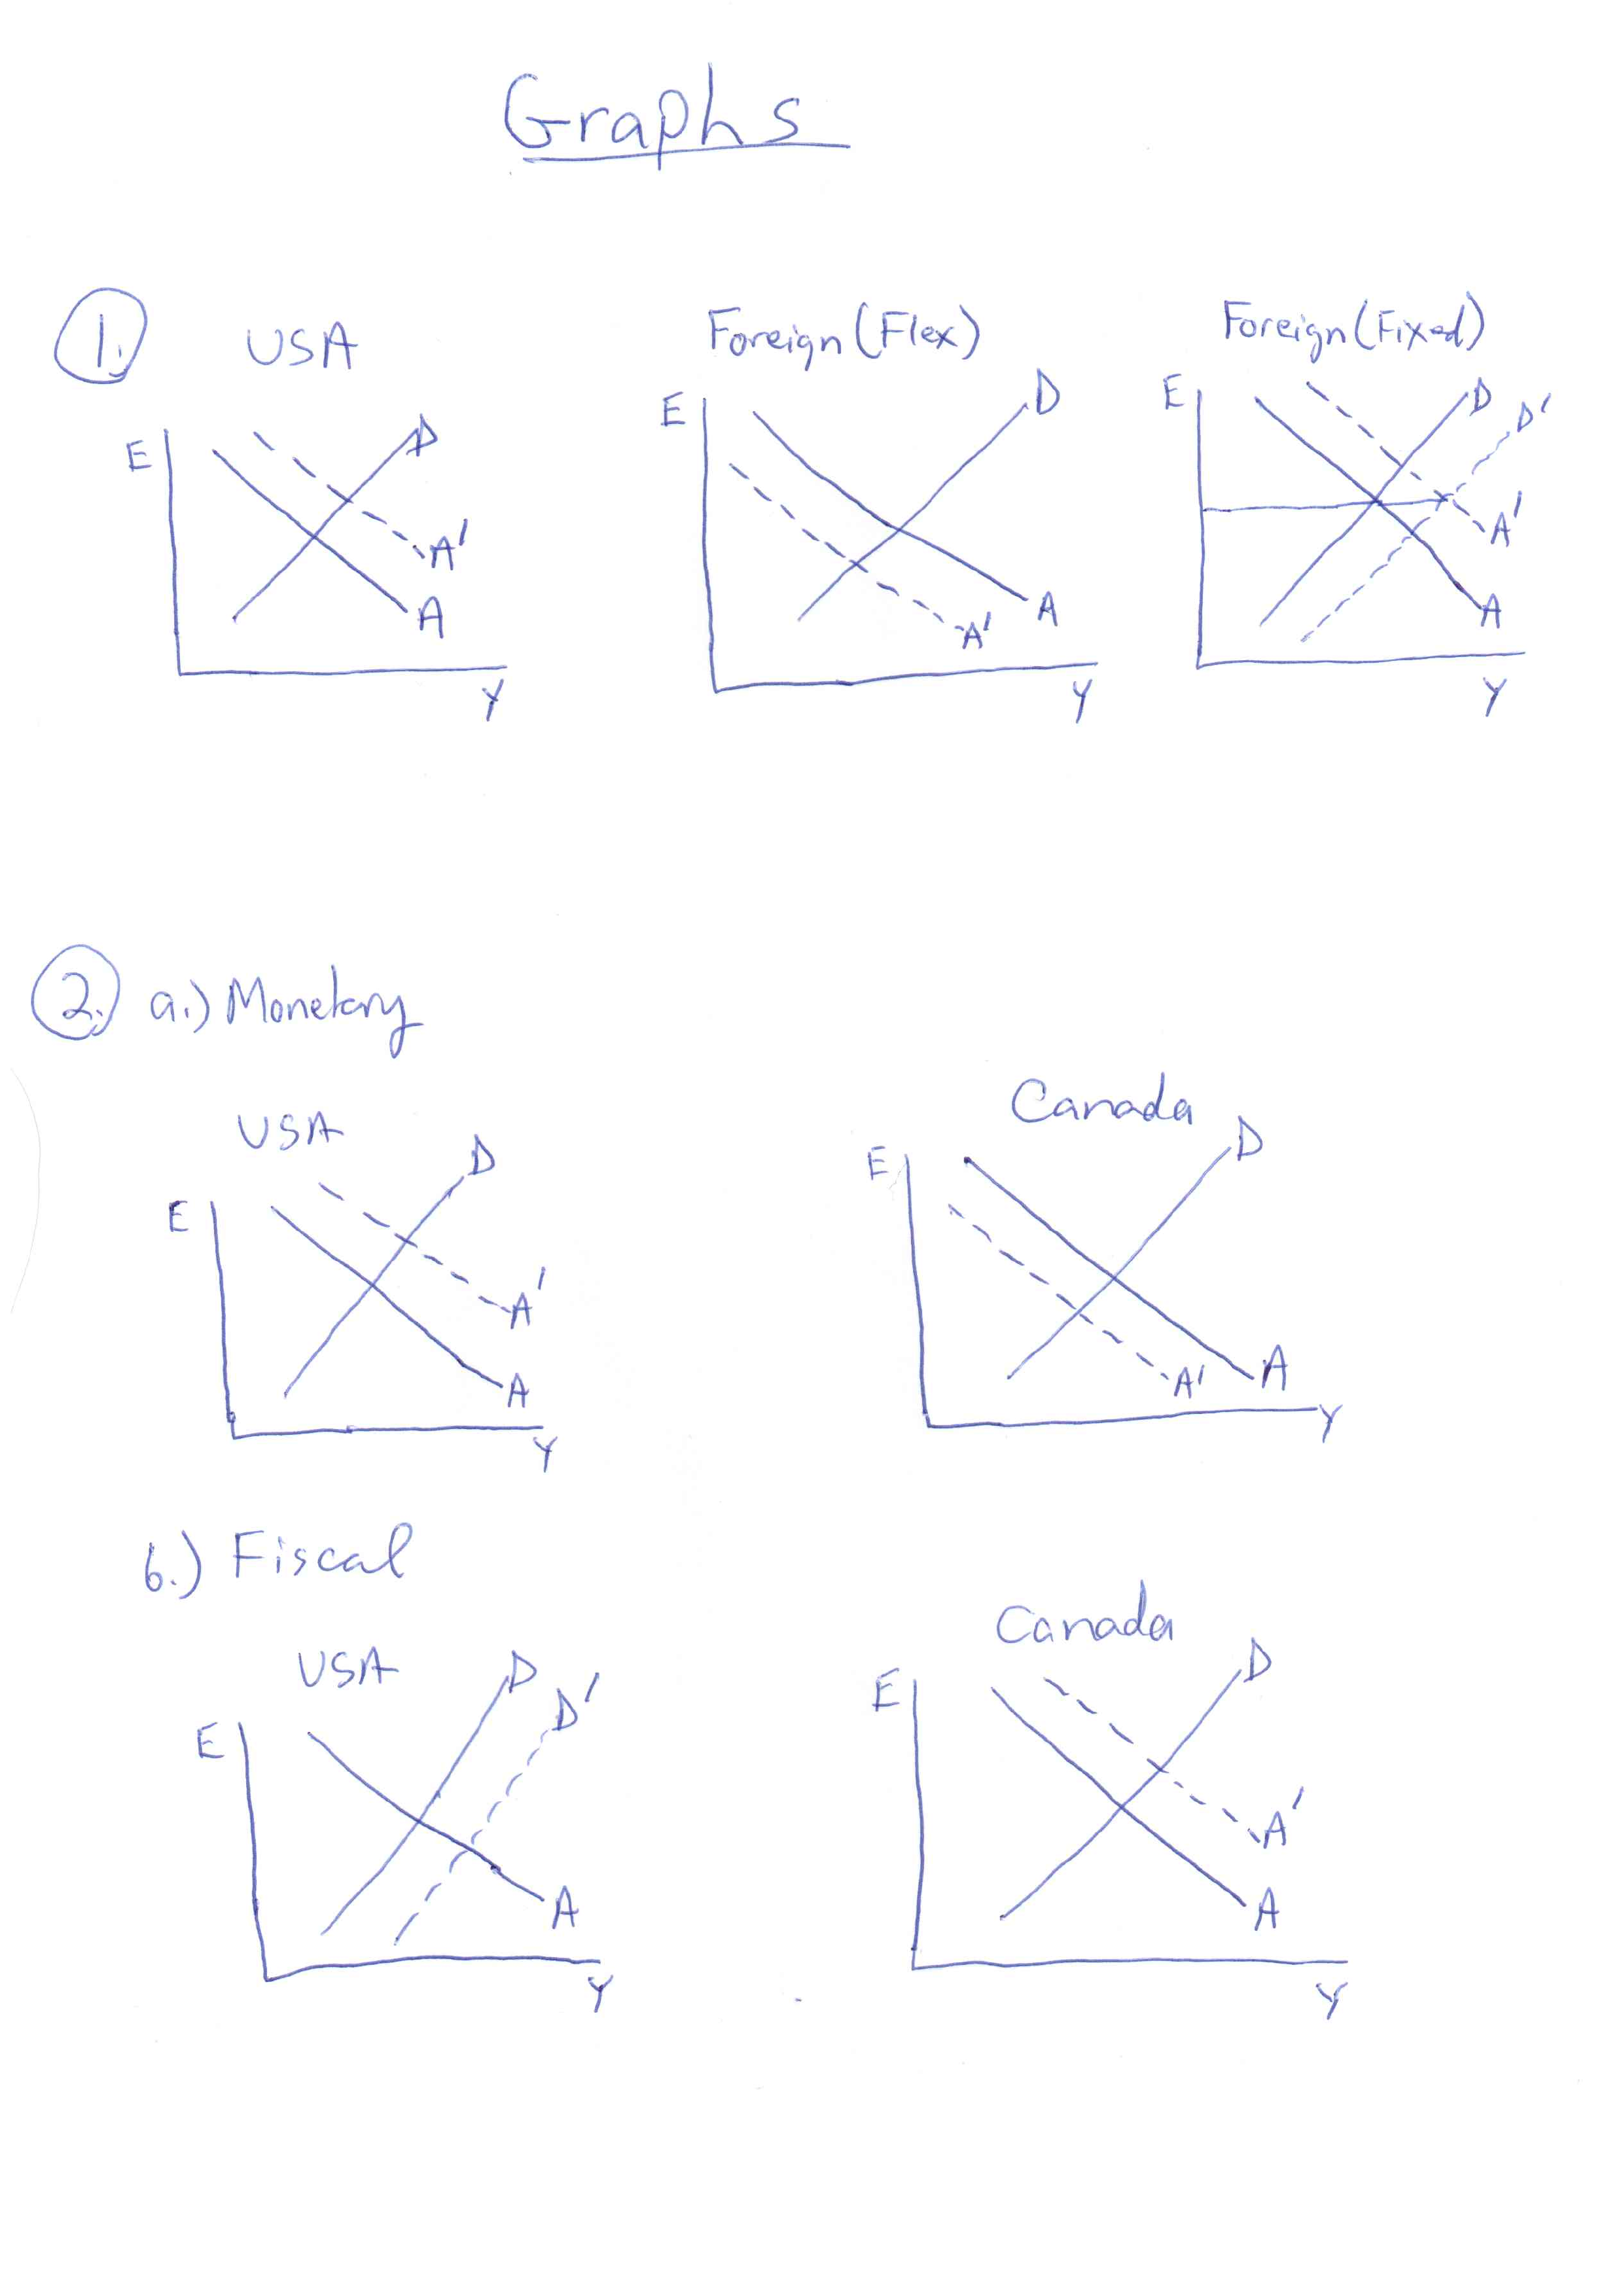 Graphs
1. USA
Foreign (Flex)
Foreign (Fixed)
E
D
A'
A
Y
E
D
A
A'
Y
E
D
D'
A'
A
Y
2. a.) Monetary
USA
E
D
A'
A
Y
Canada
E
D
A
A'
Y
b.) Fiscal
USA
E
D
D'
A
Y
Canada
E
D
A'
A
Y